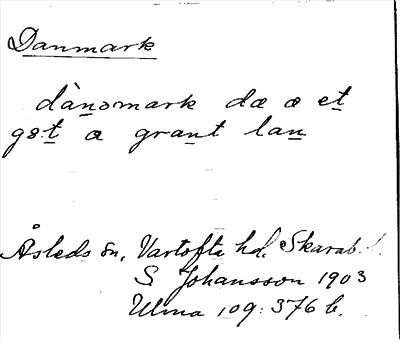 Danmark
dànɔmark dæ æ et
gɔt æ grant lan
Åsleds sn, Vartofta hd, Skarab. l.
S Johansson 1903
Ulma 109: 376 b.